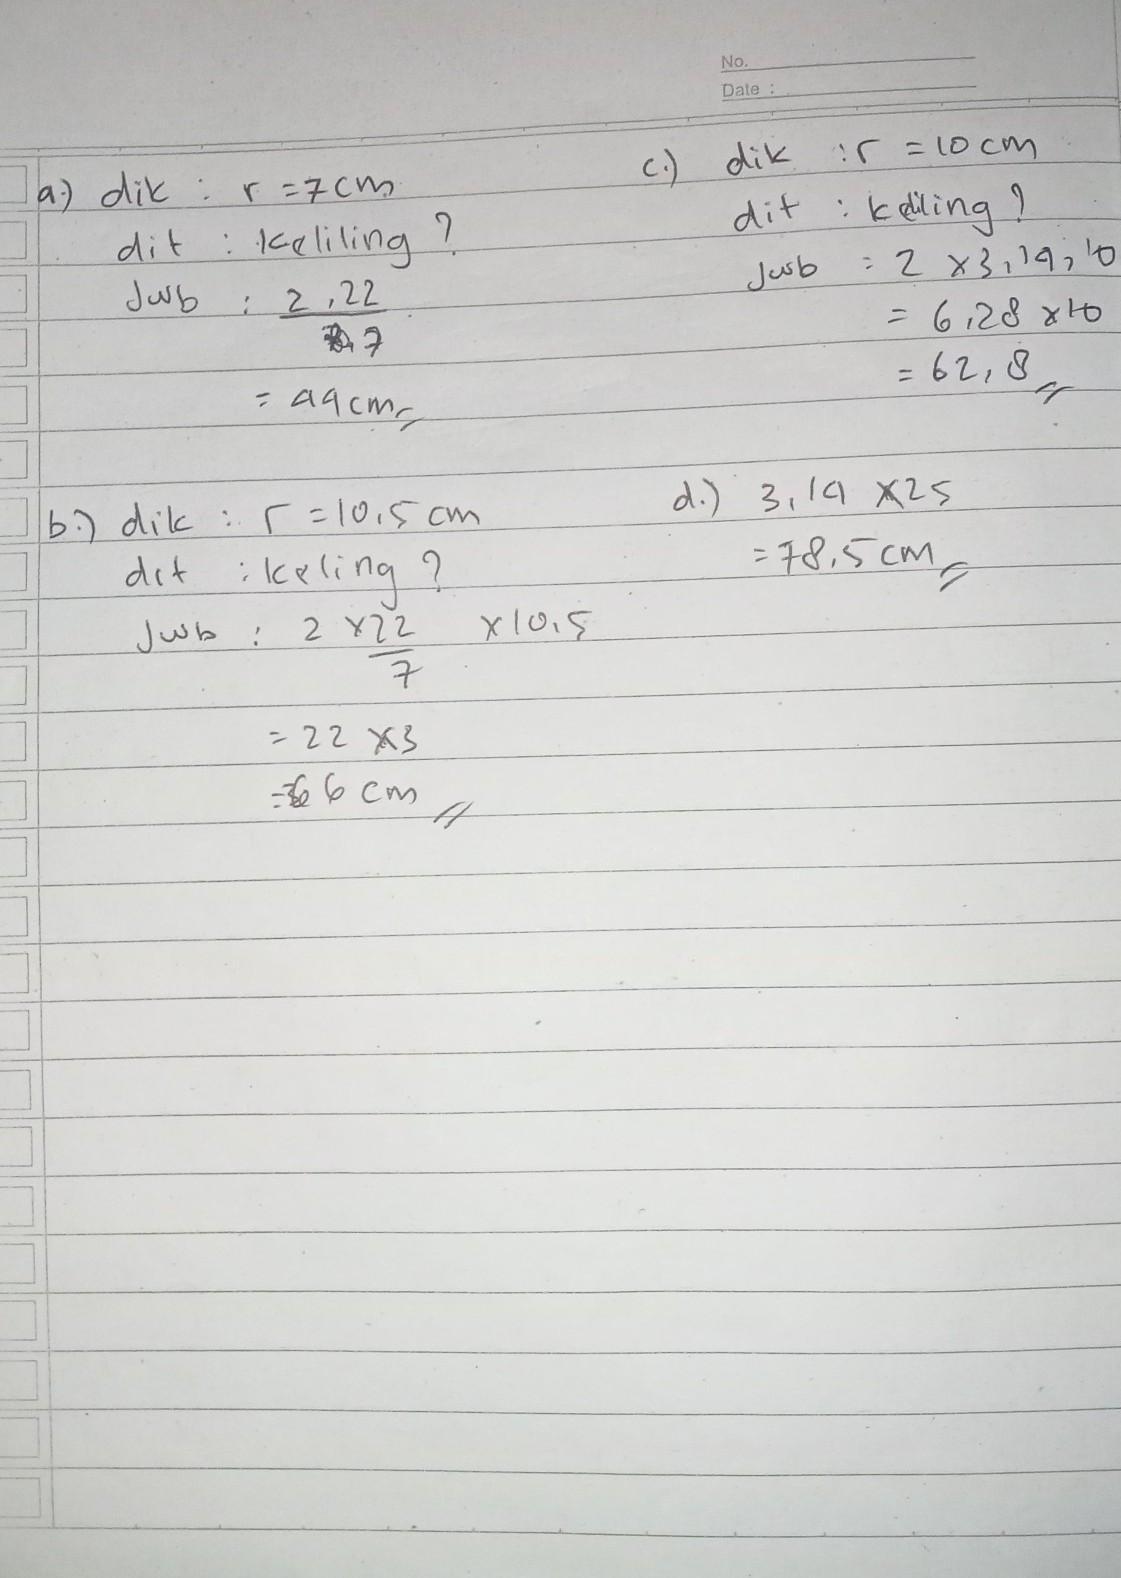 No.
Date :
a.) dik : r = 7 cm
dit : keliling ?
Jwb : 2 . 22
7
= 44 cm
b.) dik : r = 10,5 cm
dit : keling ?
Jwb : 2 x 22 x 10,5
7
= 22 x 3
= 66 cm
c.) dik : r = 10 cm
dit : keliling ?
Jwb = 2 x 3,14 , 10
= 6,28 x 10
= 62,8
d.) 3,14 x 25
= 78,5 cm